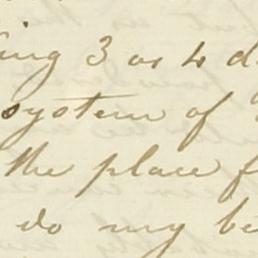 ing 3 or 4 d
system of
the place f
do my be